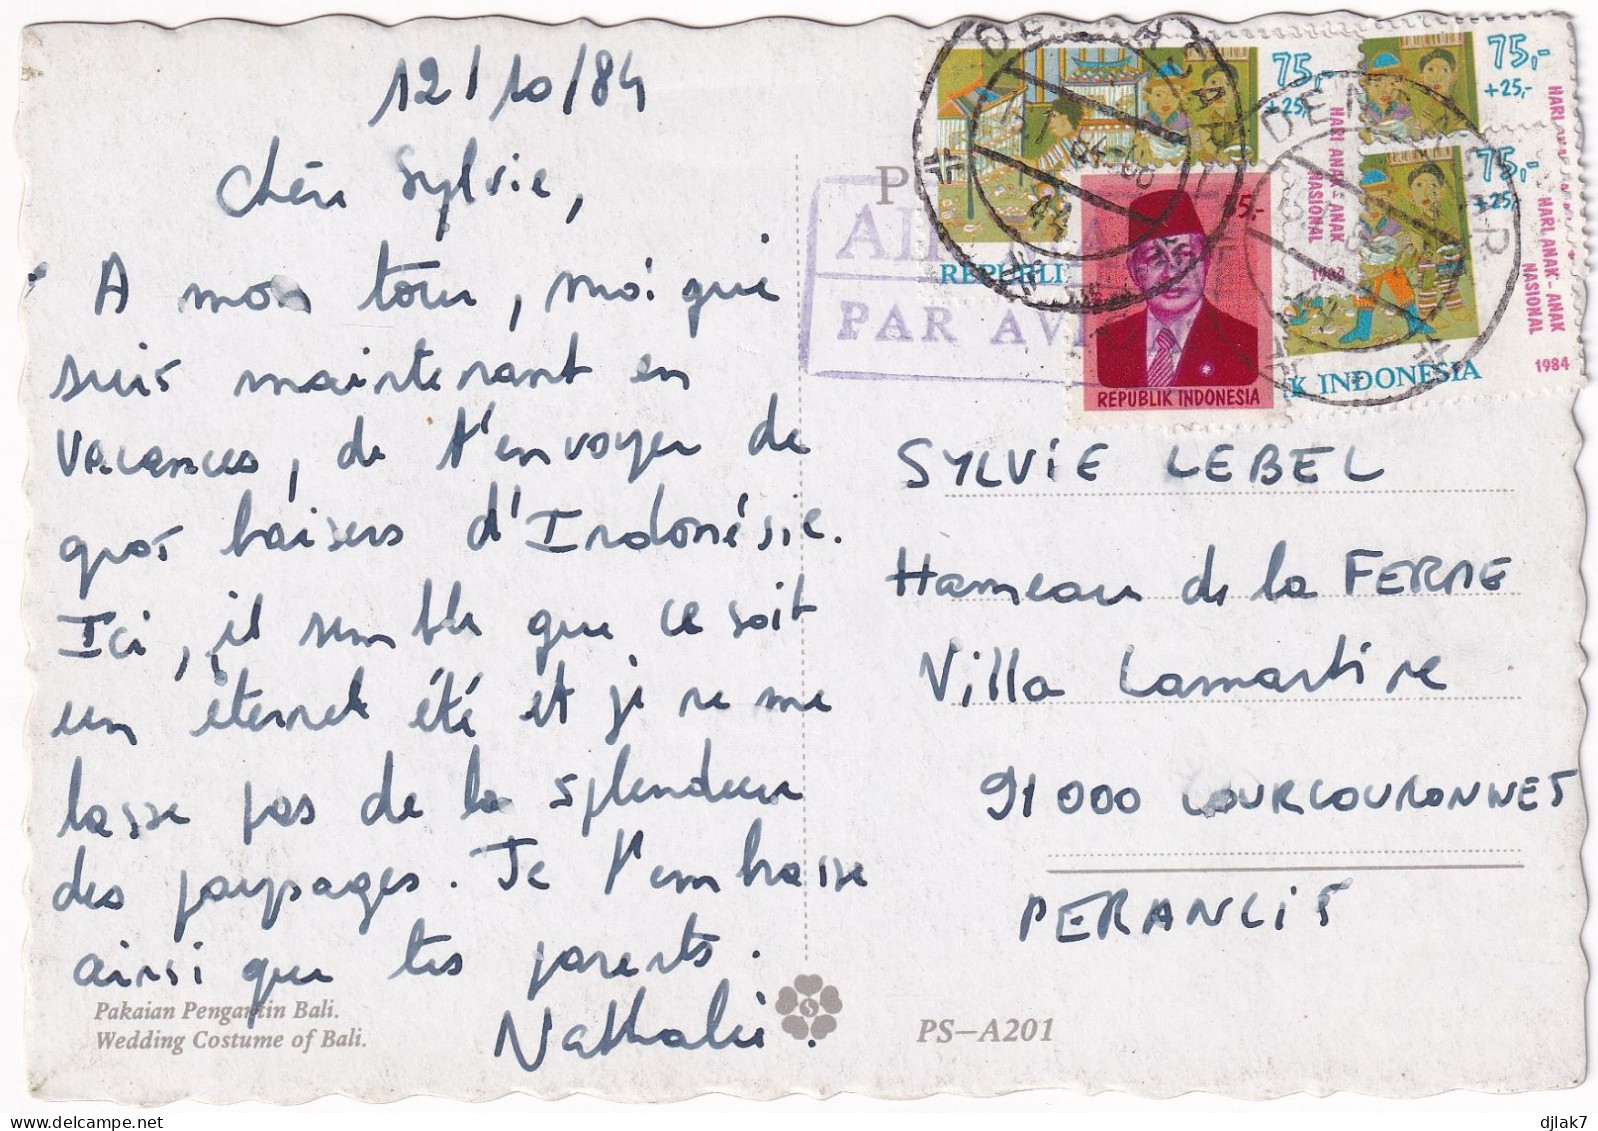 12/10/84
Chère Sylvie,
A mon tour, moi qui
suis maintenant en
vacances, de t'envoyer de
gros baisers d'Indonésie.
Ici, il semble que ce soit
un éternel été et je ne me
lasse pas de la splendeur
des paysages. Je t'embrasse
ainsi que tes parents.
Nathalie.
Pakaian Pengantin Bali.
Wedding Costume of Bali.
PS–A201
AIR
PAR AVION
DENPASAR
DENPASAR
75,-
+25,-
HARI ANAK-ANAK
NASIONAL
1984
REPUBLI
75,-
+25,-
75,-
+25,-
HARI ANAK-ANAK
NASIONAL
1984
K INDONESIA
5,-
REPUBLIK INDONESIA
SYLVIE LEBEL
Hameau de la FERME
Villa Lamartine
91000 COURCOURONNES
PERANCIS
djlak7